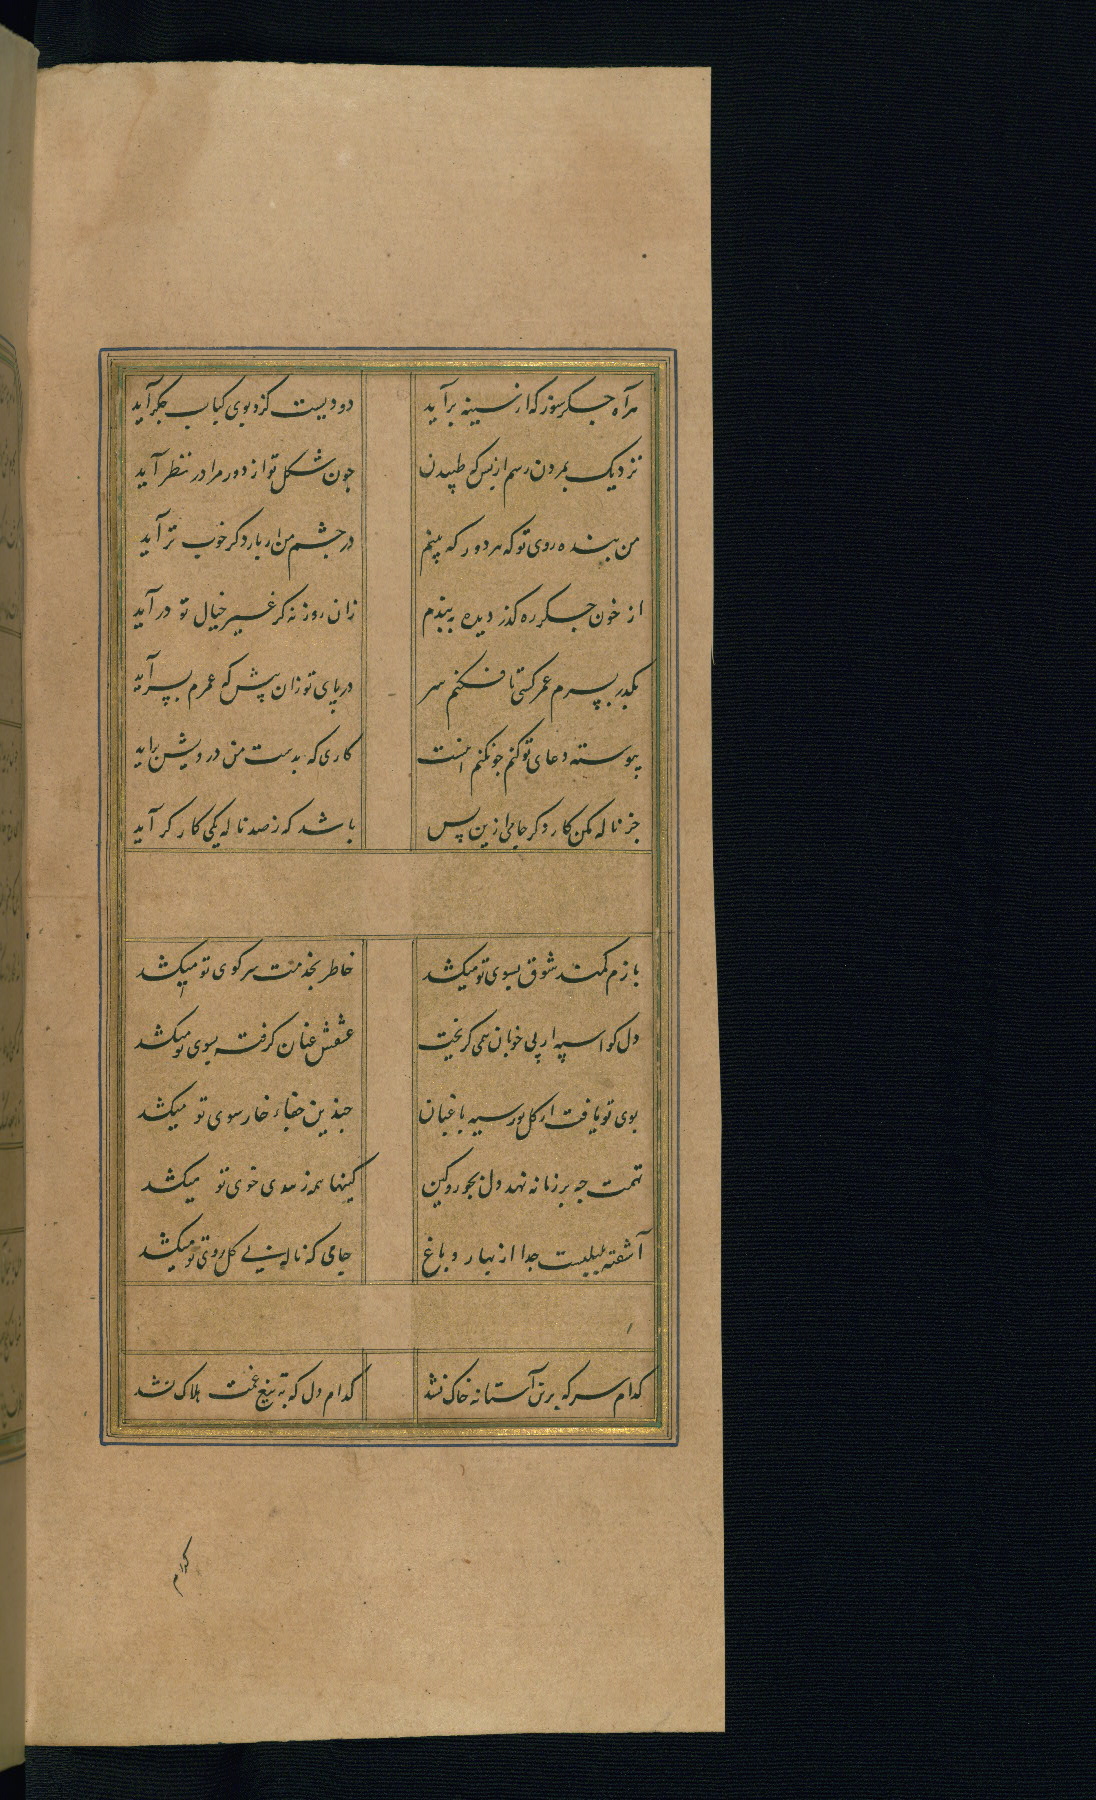 هر آه جگرسوز که از سینه برآید دودیست کزو بوی کباب جگر آید
نزدیک بمردن رسم از بس که طپیدن چون شکل تو از دور مرا در نظر آید
من بنده روی تو که هر دور که بینم در چشم من از بار دکر خوب تر آید
از خون جگر ره کذر دیده ببندم زان روزنه کر غیر خیال تو در آید
بکذر بسرم عمر کسی تا فکنم سر در پای تو زان پیش که عمرم بسر آید
پیوسته دعای تو کنم چون کنم اینست کاری که بدست من درویش براید
جز ناله مکن کار دکر جامی ازین پس باشد که ز صد ناله یکی کارکر آید
بازم کمند شوق بسوی تو میکشد خاطر بخدمت سر کوی تو میکشد
دل کو اسپه از پی خوبان همی کریخت عشقش عنان کرفته بسوی تو میکشد
بوی تو یافت از کل نورسیه باغبان چندین جفاء خار بوی تو میکشد
تهمت چه بر زمانه نهد دل بجور و کین کینها همه ز بدی خوی تو میکشد
آشفته بلبلیست جدا از بهار و باغ جامی که ناله بی کل روی تو میکشد
کدام سر که برین آستانه خاک نشد کدام دل که به تیغ غمت هلاک نشد
کدام